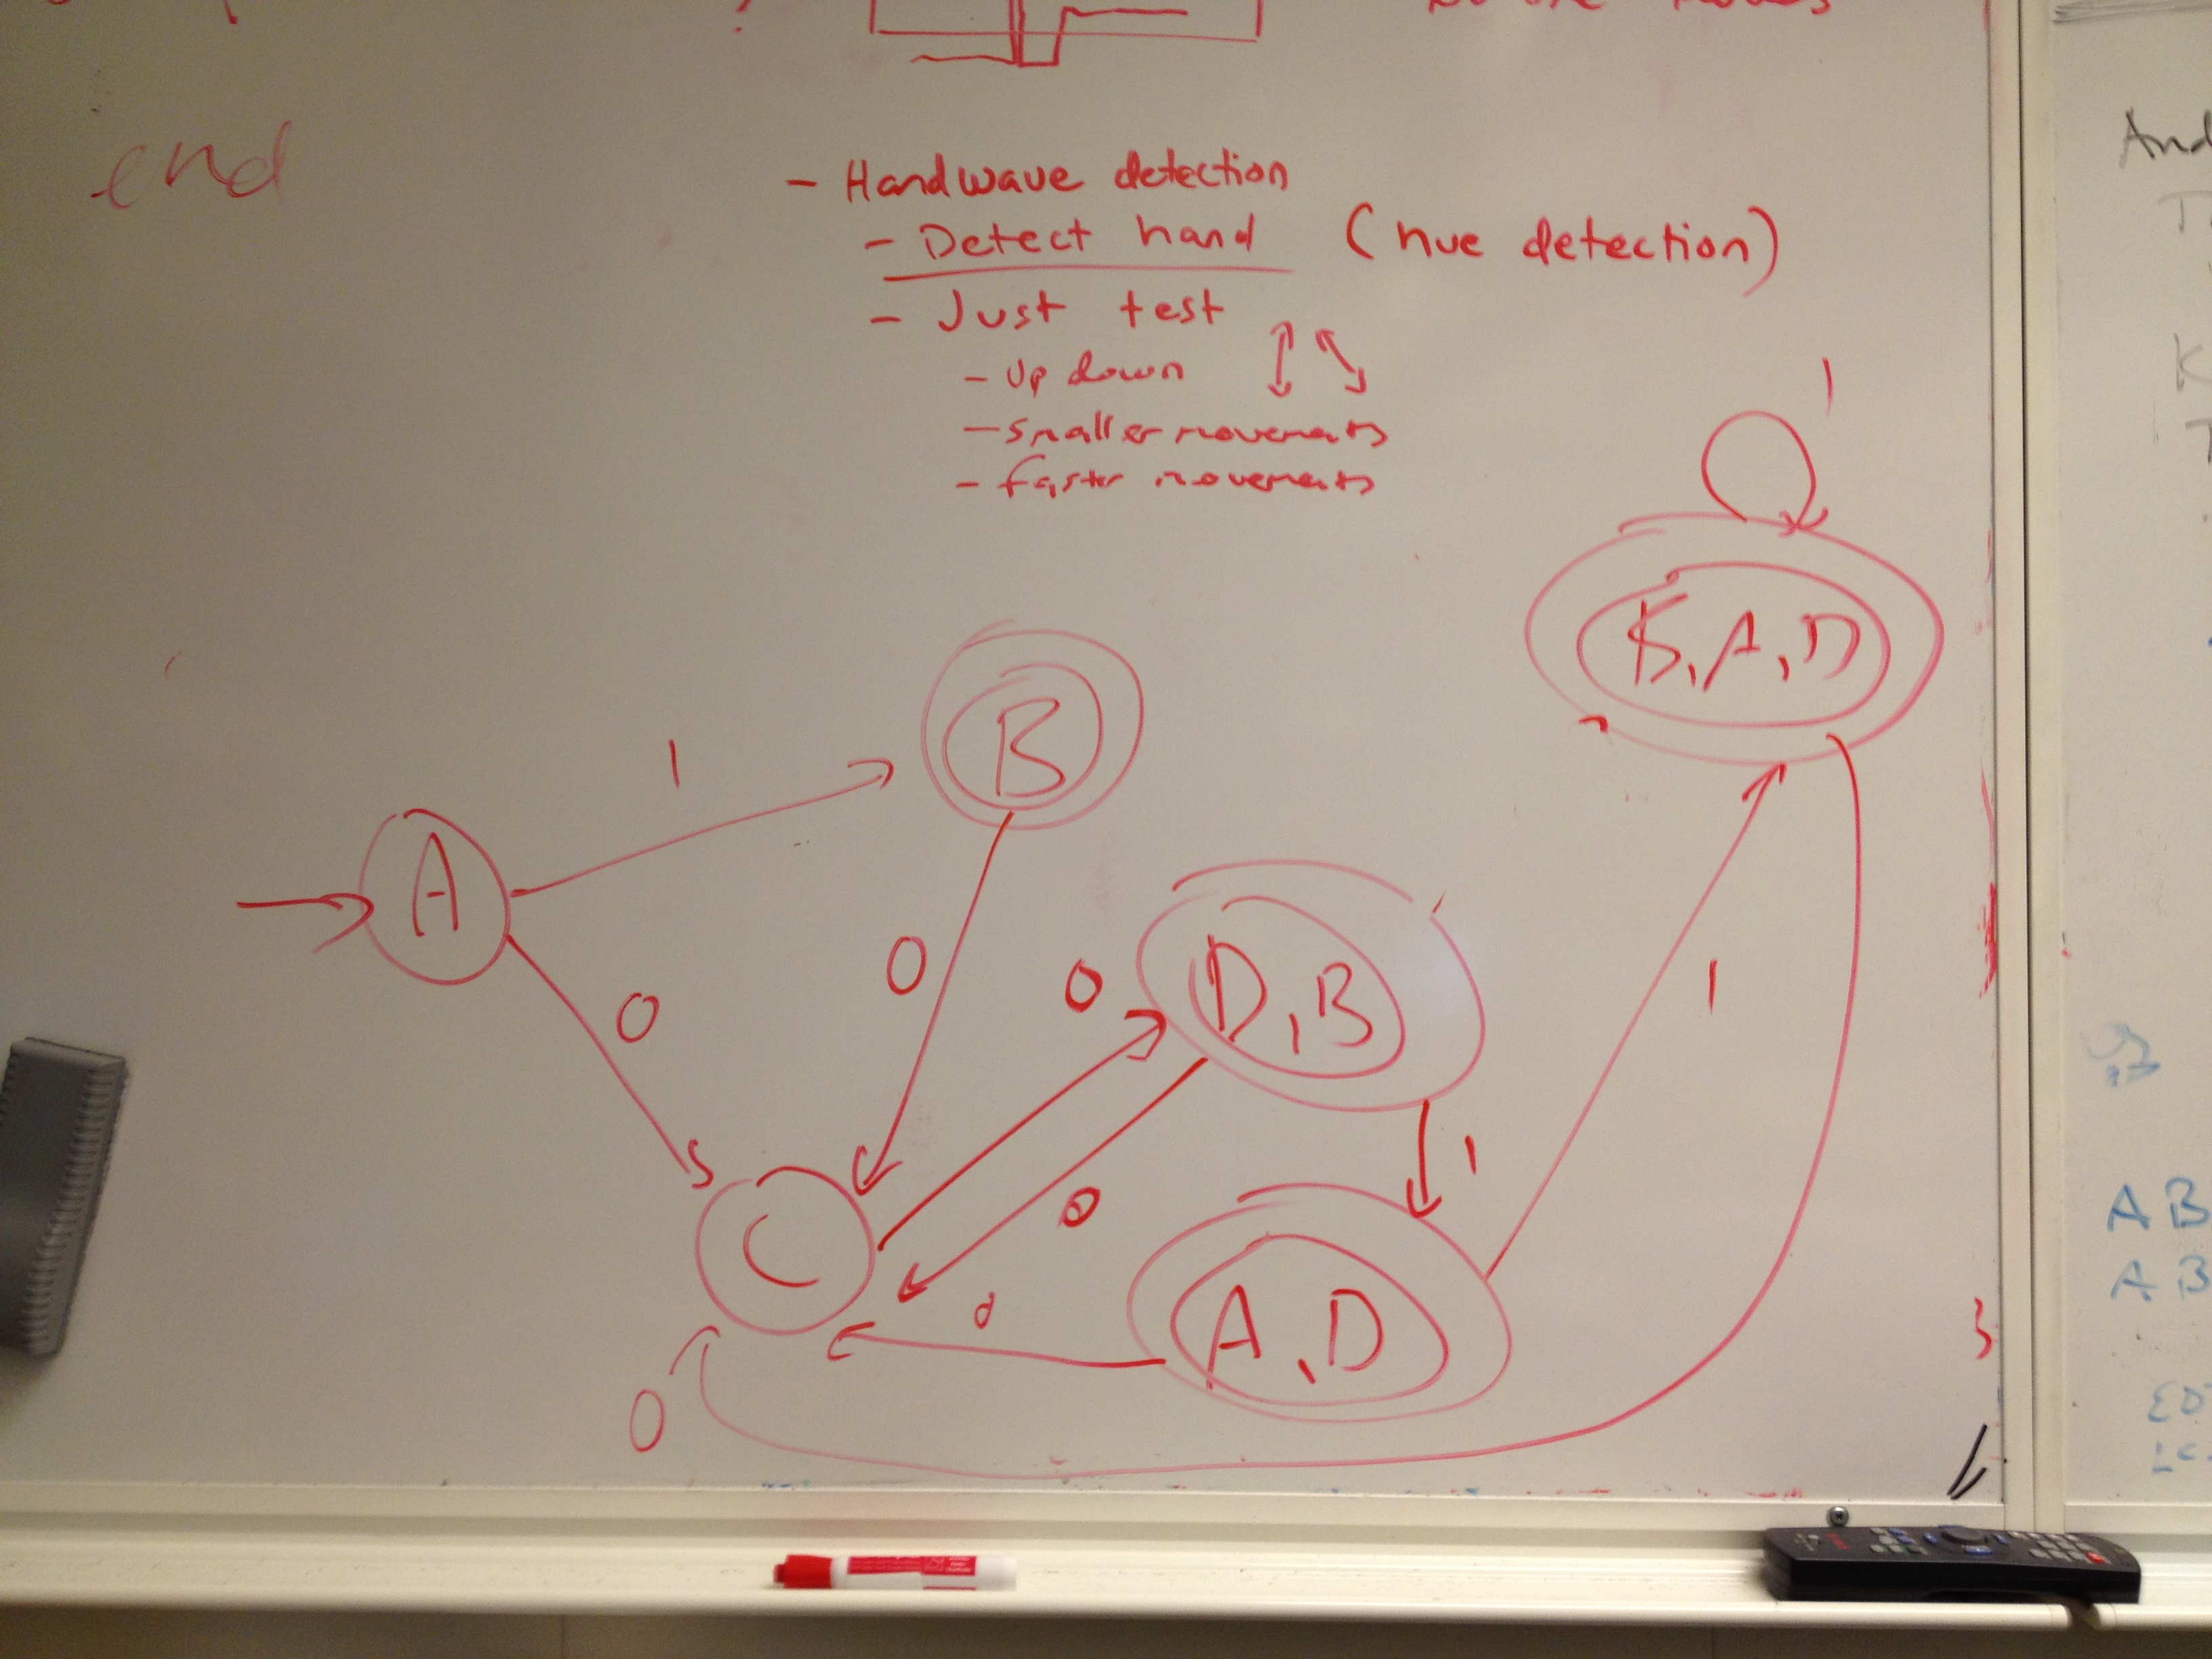 end
- Handwave detection
- Detect hand (hue detection)
- Just test
- Up down
- smaller movements
- faster movements
1
B, A, D
B
1
A
0
0
0
D, B
1
1
0
C
0
A, D
0
And
T
K
T
A B
A B